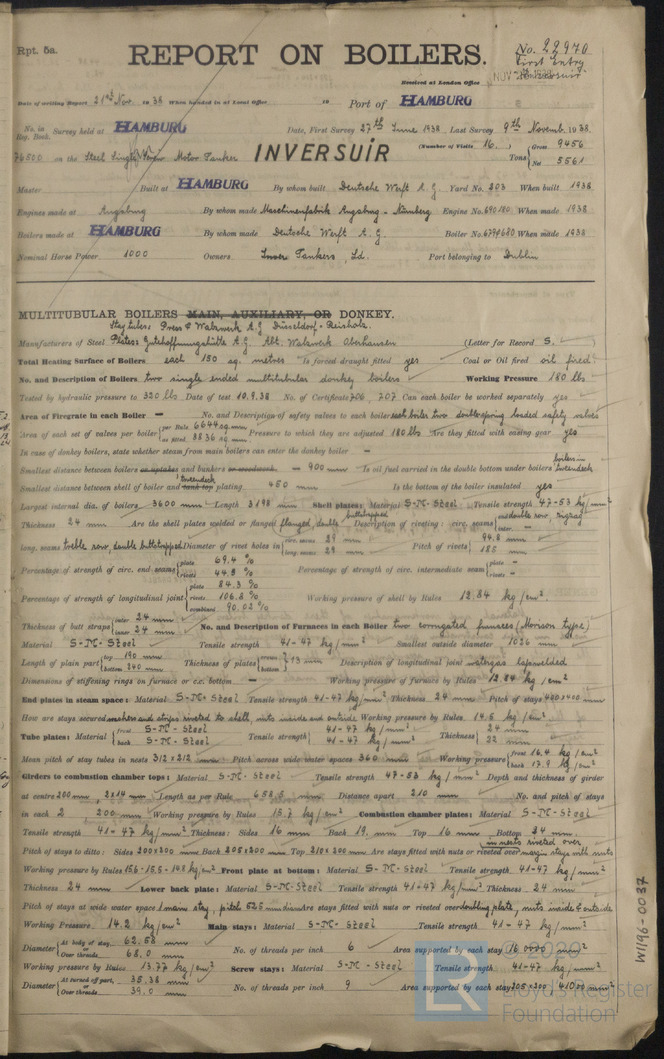 Rpt. 5a.
REPORT ON BOILERS.
No. 22970
First Entry
Received at London Office
NOV 1938
Date of writing Report 21st Nov 1938 When handed in at Local Office 19 Port of HAMBURG
No. in Reg. Book. Survey held at HAMBURG Date, First Survey 27th June 1938. Last Survey 9th Novemb. 1938
76500 on the Steel Single Screw Motor Tanker INVERSUIR (Number of Visits 16.) Tons Gross 9456 Net 5561
Master Built at HAMBURG By whom built Deutsche Werft A.G. Yard No. 203 When built 1938
Engines made at Augsburg By whom made Maschinenfabrik Augsburg-Nürnberg Engine No. 690180 When made 1938
Boilers made at HAMBURG By whom made Deutsche Werft A.G. Boiler No. 679/680 When made 1938
Nominal Horse Power 1000 Owners Inver Tankers, Ld. Port belonging to Dublin
MULTITUBULAR BOILERS MAIN, AUXILIARY, OR DONKEY.
Stay tubes: Press & Walzwerk A.G. Düsseldorf-Reisholz.
Manufacturers of Steel Plates: Gutehoffnungshütte A.G. Abt. Walzwerk Oberhausen (Letter for Record S.)
Total Heating Surface of Boilers each 150 sq. metres Is forced draught fitted yes Coal or Oil fired oil fired
No. and Description of Boilers two single ended multitubular donkey boilers Working Pressure 180 lbs
Tested by hydraulic pressure to 320 lbs Date of test 10.9.38 No. of Certificate 706, 707 Can each boiler be worked separately yes
Area of Firegrate in each Boiler — No. and Description of safety valves to each boiler each boiler two double spring loaded safety valves
Area of each set of valves per boiler per Rule 6644 sq mm as fitted 8836 sq mm Pressure to which they are adjusted 180 lbs Are they fitted with easing gear yes
In case of donkey boilers, state whether steam from main boilers can enter the donkey boiler —
Smallest distance between boilers or uptakes and bunkers or woodwork ~ 900 mm Is oil fuel carried in the double bottom under boilers boilers in tweendeck
Smallest distance between shell of boiler and tank top tweendeck plating 450 mm Is the bottom of the boiler insulated yes
Largest internal dia. of boilers 3600 mm Length 3198 mm Shell plates: Material S-M-Steel Tensile strength 47-53 kg/mm²
Thickness 24 mm Are the shell plates welded or flanged flanged, double buttstrapped Description of riveting: circ. seams end double row, zigzag inter. —
long. seams treble row, double buttstrapped Diameter of rivet holes in circ. seams 29 mm long. seams 29 mm Pitch of rivets 94.8 mm 185 mm
Percentage of strength of circ. end seams plate 69.4 % rivets 44.8 % Percentage of strength of circ. intermediate seam plate — rivets —
Percentage of strength of longitudinal joint plate 84.3 % rivets 106.8 % combined 90.02 % Working pressure of shell by Rules 12.84 kg/cm²
Thickness of butt straps outer 24 mm inner 24 mm No. and Description of Furnaces in each Boiler two corrugated furnaces (Morison type)
Material S-M-Steel Tensile strength 41-47 kg/mm² Smallest outside diameter 1026 mm
Length of plain part top 190 mm bottom 240 mm Thickness of plates crown bottom 13 mm Description of longitudinal joint watergas lapwelded
Dimensions of stiffening rings on furnace or c.c. bottom — Working pressure of furnace by Rules 12.84 kg/cm²
End plates in steam space: Material S-M-Steel Tensile strength 41-47 kg/mm² Thickness 24 mm Pitch of stays 420x400 mm
How are stays secured washers and strips riveted to shell, nuts inside and outside Working pressure by Rules 14.5 kg/cm²
Tube plates: Material front S-M-Steel back S-M-Steel Tensile strength 41-47 kg/mm² 41-47 kg/mm² Thickness 24 mm 22 mm
Mean pitch of stay tubes in nests 312x212 mm Pitch across wide water spaces 360 mm Working pressure front 16.4 kg/cm² back 17.9 kg/cm²
Girders to combustion chamber tops: Material S-M-Steel Tensile strength 47-53 kg/mm² Depth and thickness of girder
at centre 200 mm, 2x14 mm Length as per Rule 658.5 mm Distance apart 210 mm No. and pitch of stays
in each 2 200 mm Working pressure by Rules 15.7 kg/cm² Combustion chamber plates: Material S-M-Steel
Tensile strength 41-47 kg/mm² Thickness: Sides 16 mm Back 19 mm Top 16 mm Bottom 24 mm
Pitch of stays to ditto: Sides 200x200 mm Back 205x200 mm Top 210x200 mm Are stays fitted with nuts or riveted over in nests riveted over margin stays with nuts
Working pressure by Rules 15.6-15.5-14.8 kg/cm² Front plate at bottom: Material S-M-Steel Tensile strength 41-47 kg/mm²
Thickness 24 mm Lower back plate: Material S-M-Steel Tensile strength 41-47 kg/mm² Thickness 24 mm
Pitch of stays at wide water space 1 main stay, pitch 525 mm Are stays fitted with nuts or riveted over doubling plate, nuts inside & outside
Working Pressure 14.2 kg/cm² Main stays: Material S-M-Steel Tensile strength 41-47 kg/mm²
Diameter At body of stay, 62.58 mm Over threads 68.0 mm No. of threads per inch 6 Area supported by each stay 160000 mm²
Working pressure by Rules 13.77 kg/cm² Screw stays: Material S-M-Steel Tensile strength 41-47 kg/mm²
Diameter At turned off part, 35.38 mm Over threads 39.0 mm No. of threads per inch 9 Area supported by each stay 205x200 41000 mm²
W1196-0037
© 2020
LR
Lloyd's Register
Foundation